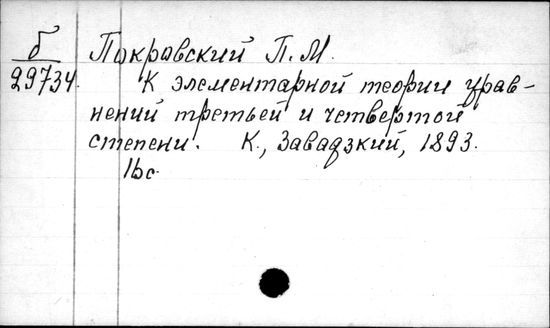 б
29734.
Покровский П. М.
К элементарной теории урав-
нений третьей и четвертой
степени. К., Завадзкий, 1893.
16с.